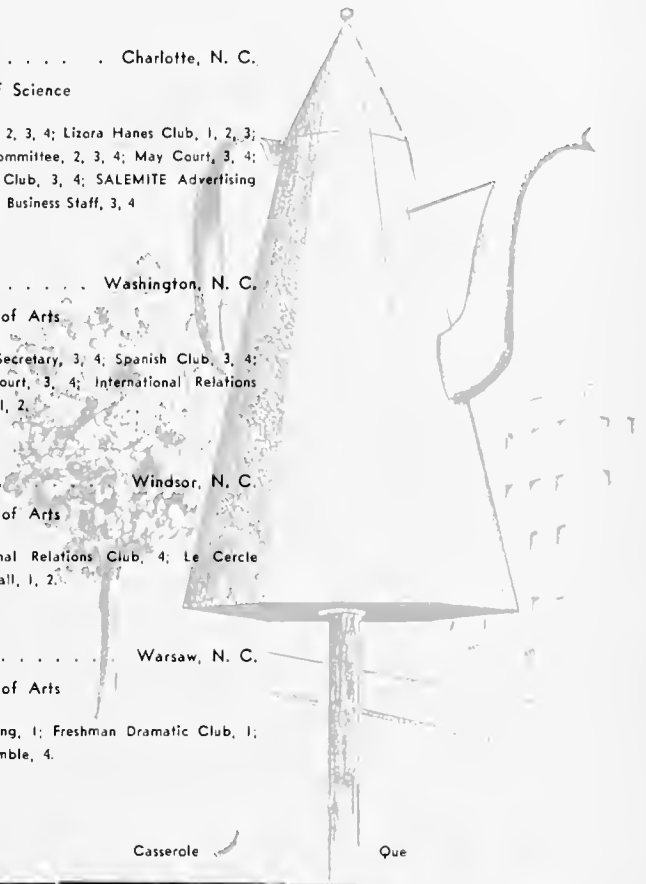 . . . . Charlotte, N. C.
f Science
2, 3, 4; Lizora Hanes Club, 1, 2, 3;
ommittee, 2, 3, 4; May Court, 3, 4;
Club, 3, 4; SALEMITE Advertising
Business Staff, 3, 4
. . . . . . Washington, N. C.
of Arts
Secretary, 3, 4; Spanish Club, 3, 4;
ourt, 3, 4; International Relations
1, 2.
. . . . . Windsor, N. C.
of Arts
nal Relations Club, 4; Le Cercle
all, 1, 2.
. . . . . . . Warsaw, N. C.
of Arts
ng, 1; Freshman Dramatic Club, 1;
mble, 4.
Casserole Que